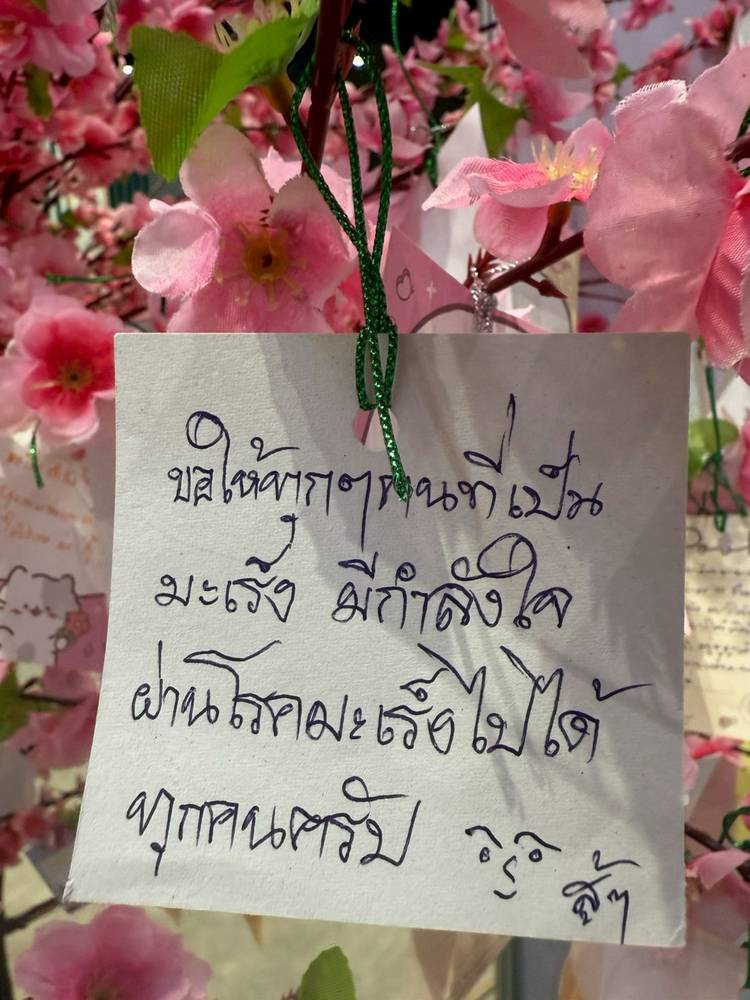 ขอให้ทุกๆคนที่เป็น
มะเร็ง มีกำลังใจ
ผ่านโรคมะเร็งไปได้
ทุกคนครับ
สู้ๆ